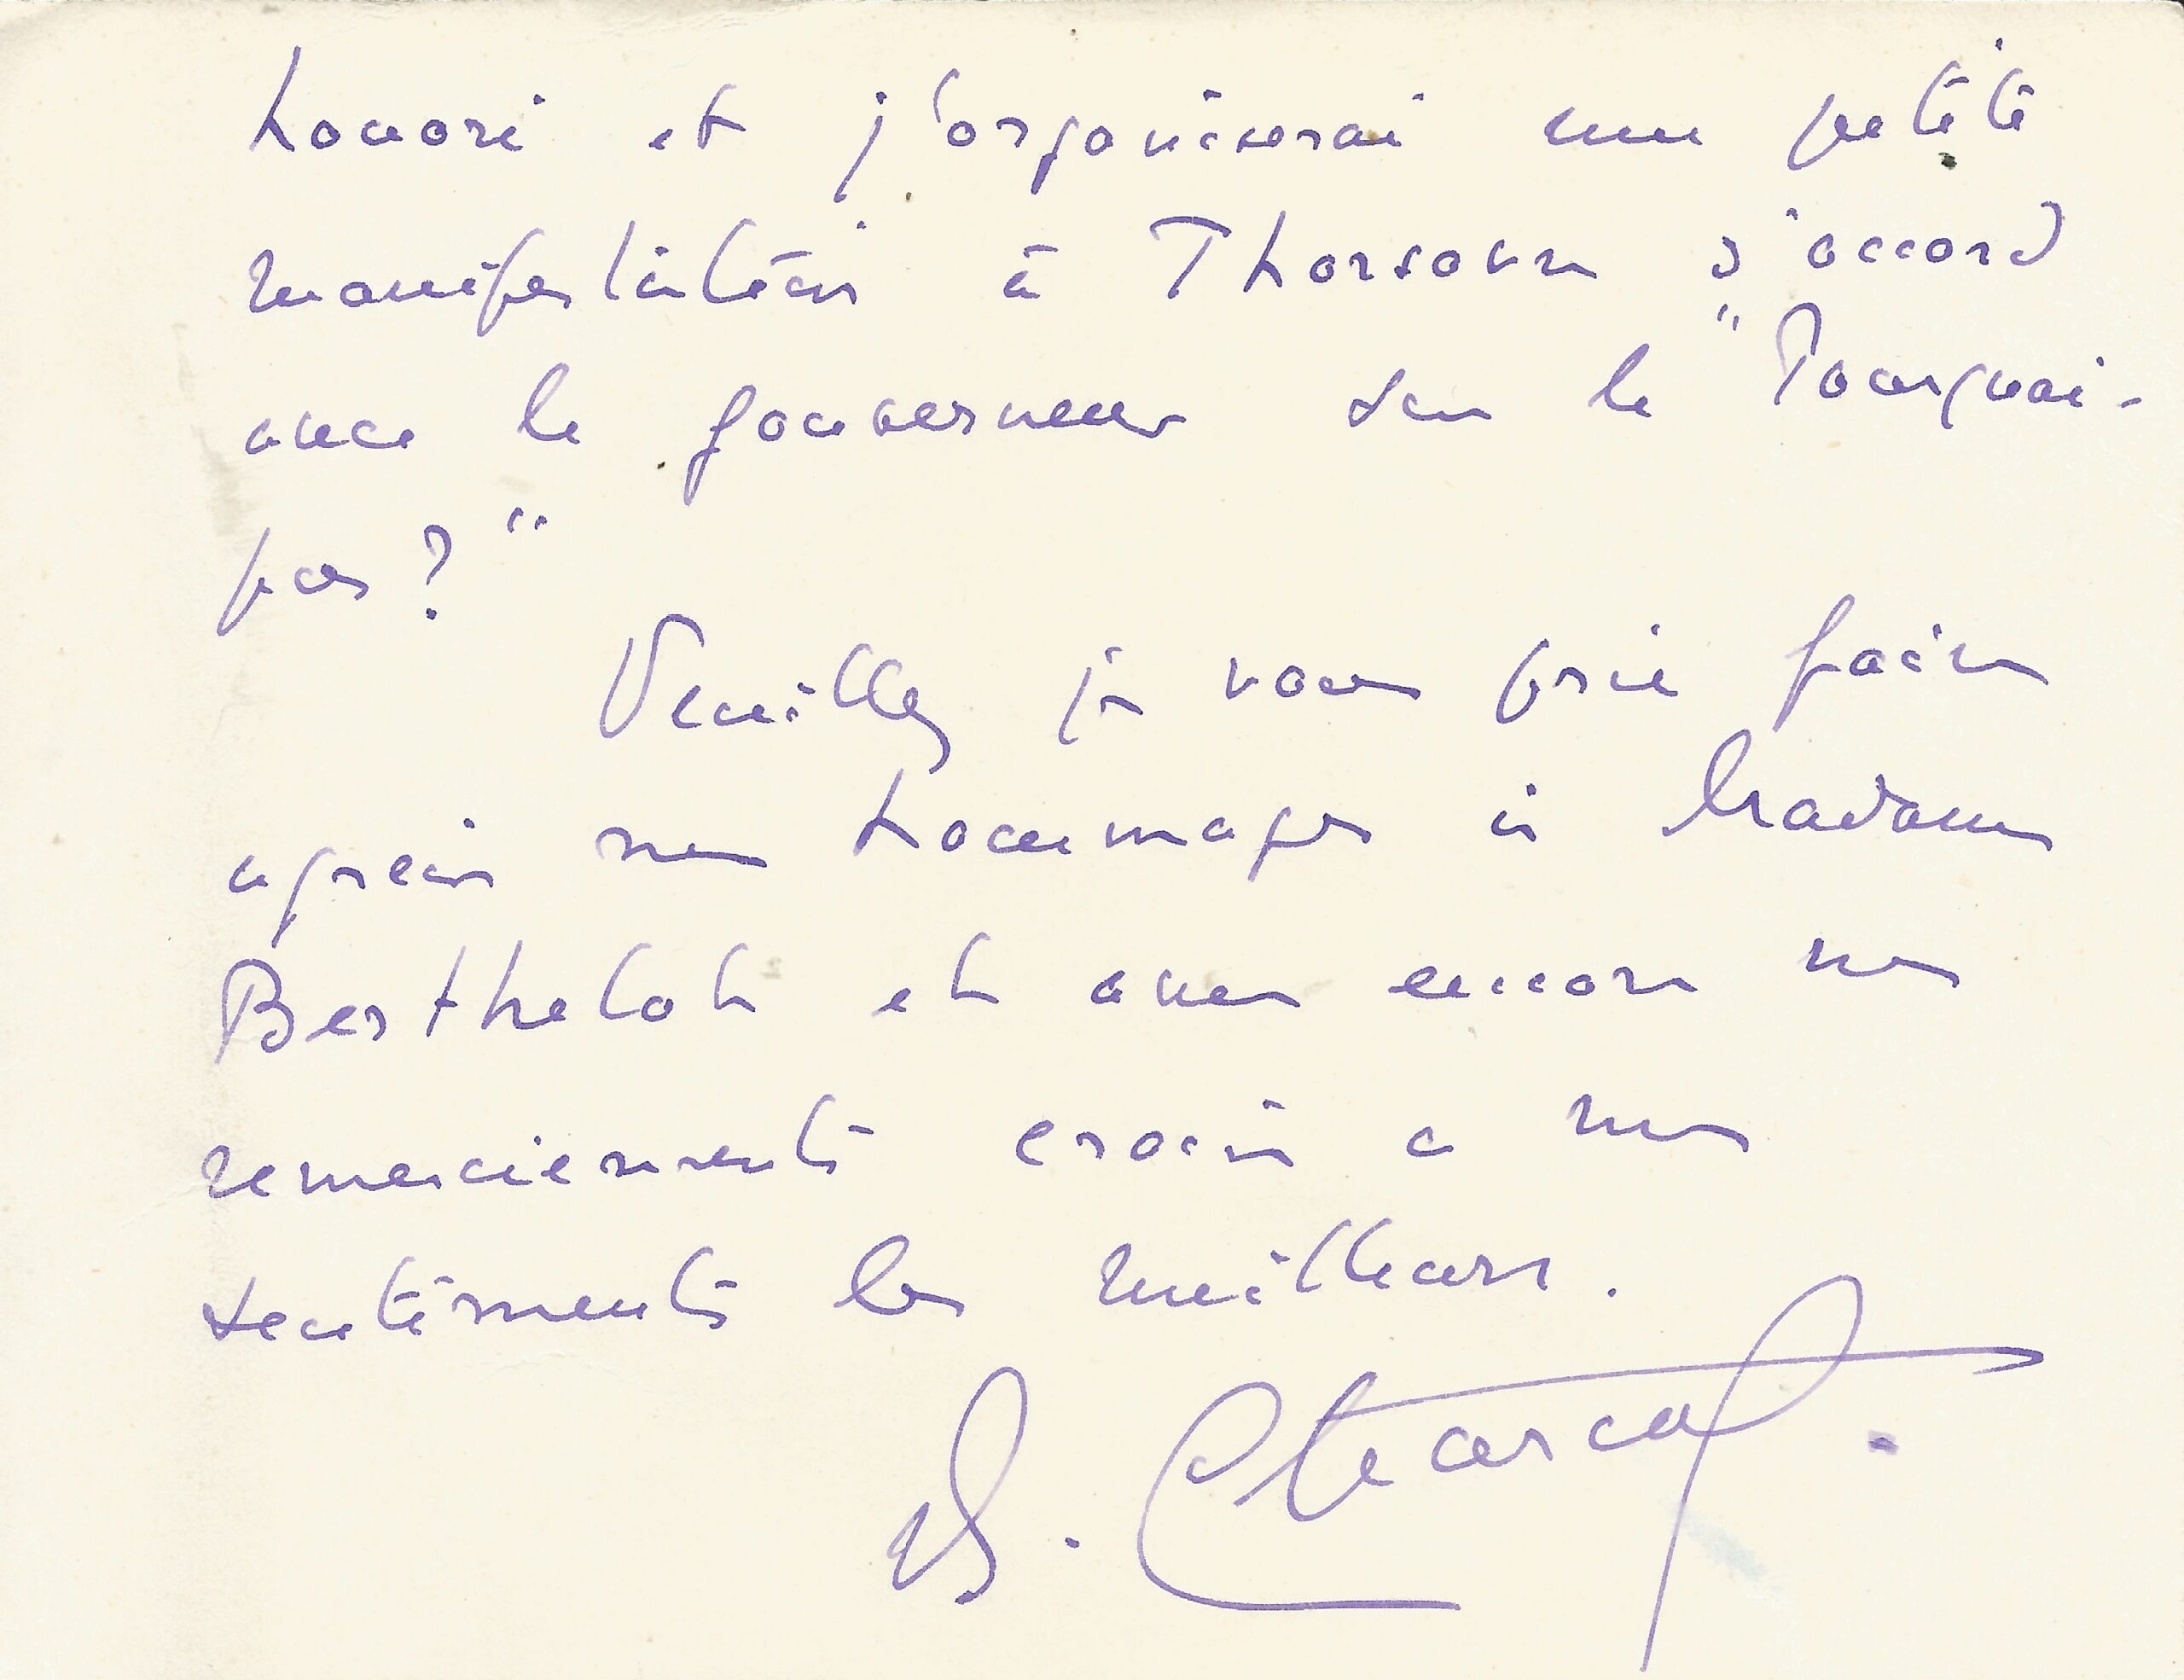 honoré et j'organiserai une petite
manifestation à Thorsavn d'accord
avec le gouverneur sur le "Pourquoi-
pas?"
Veuillez je vous prie faire
agréer mes hommages à Madame
Berthelot et avec encore mes
remerciements croire a mes
sentiments les meilleurs.
J. Charcot